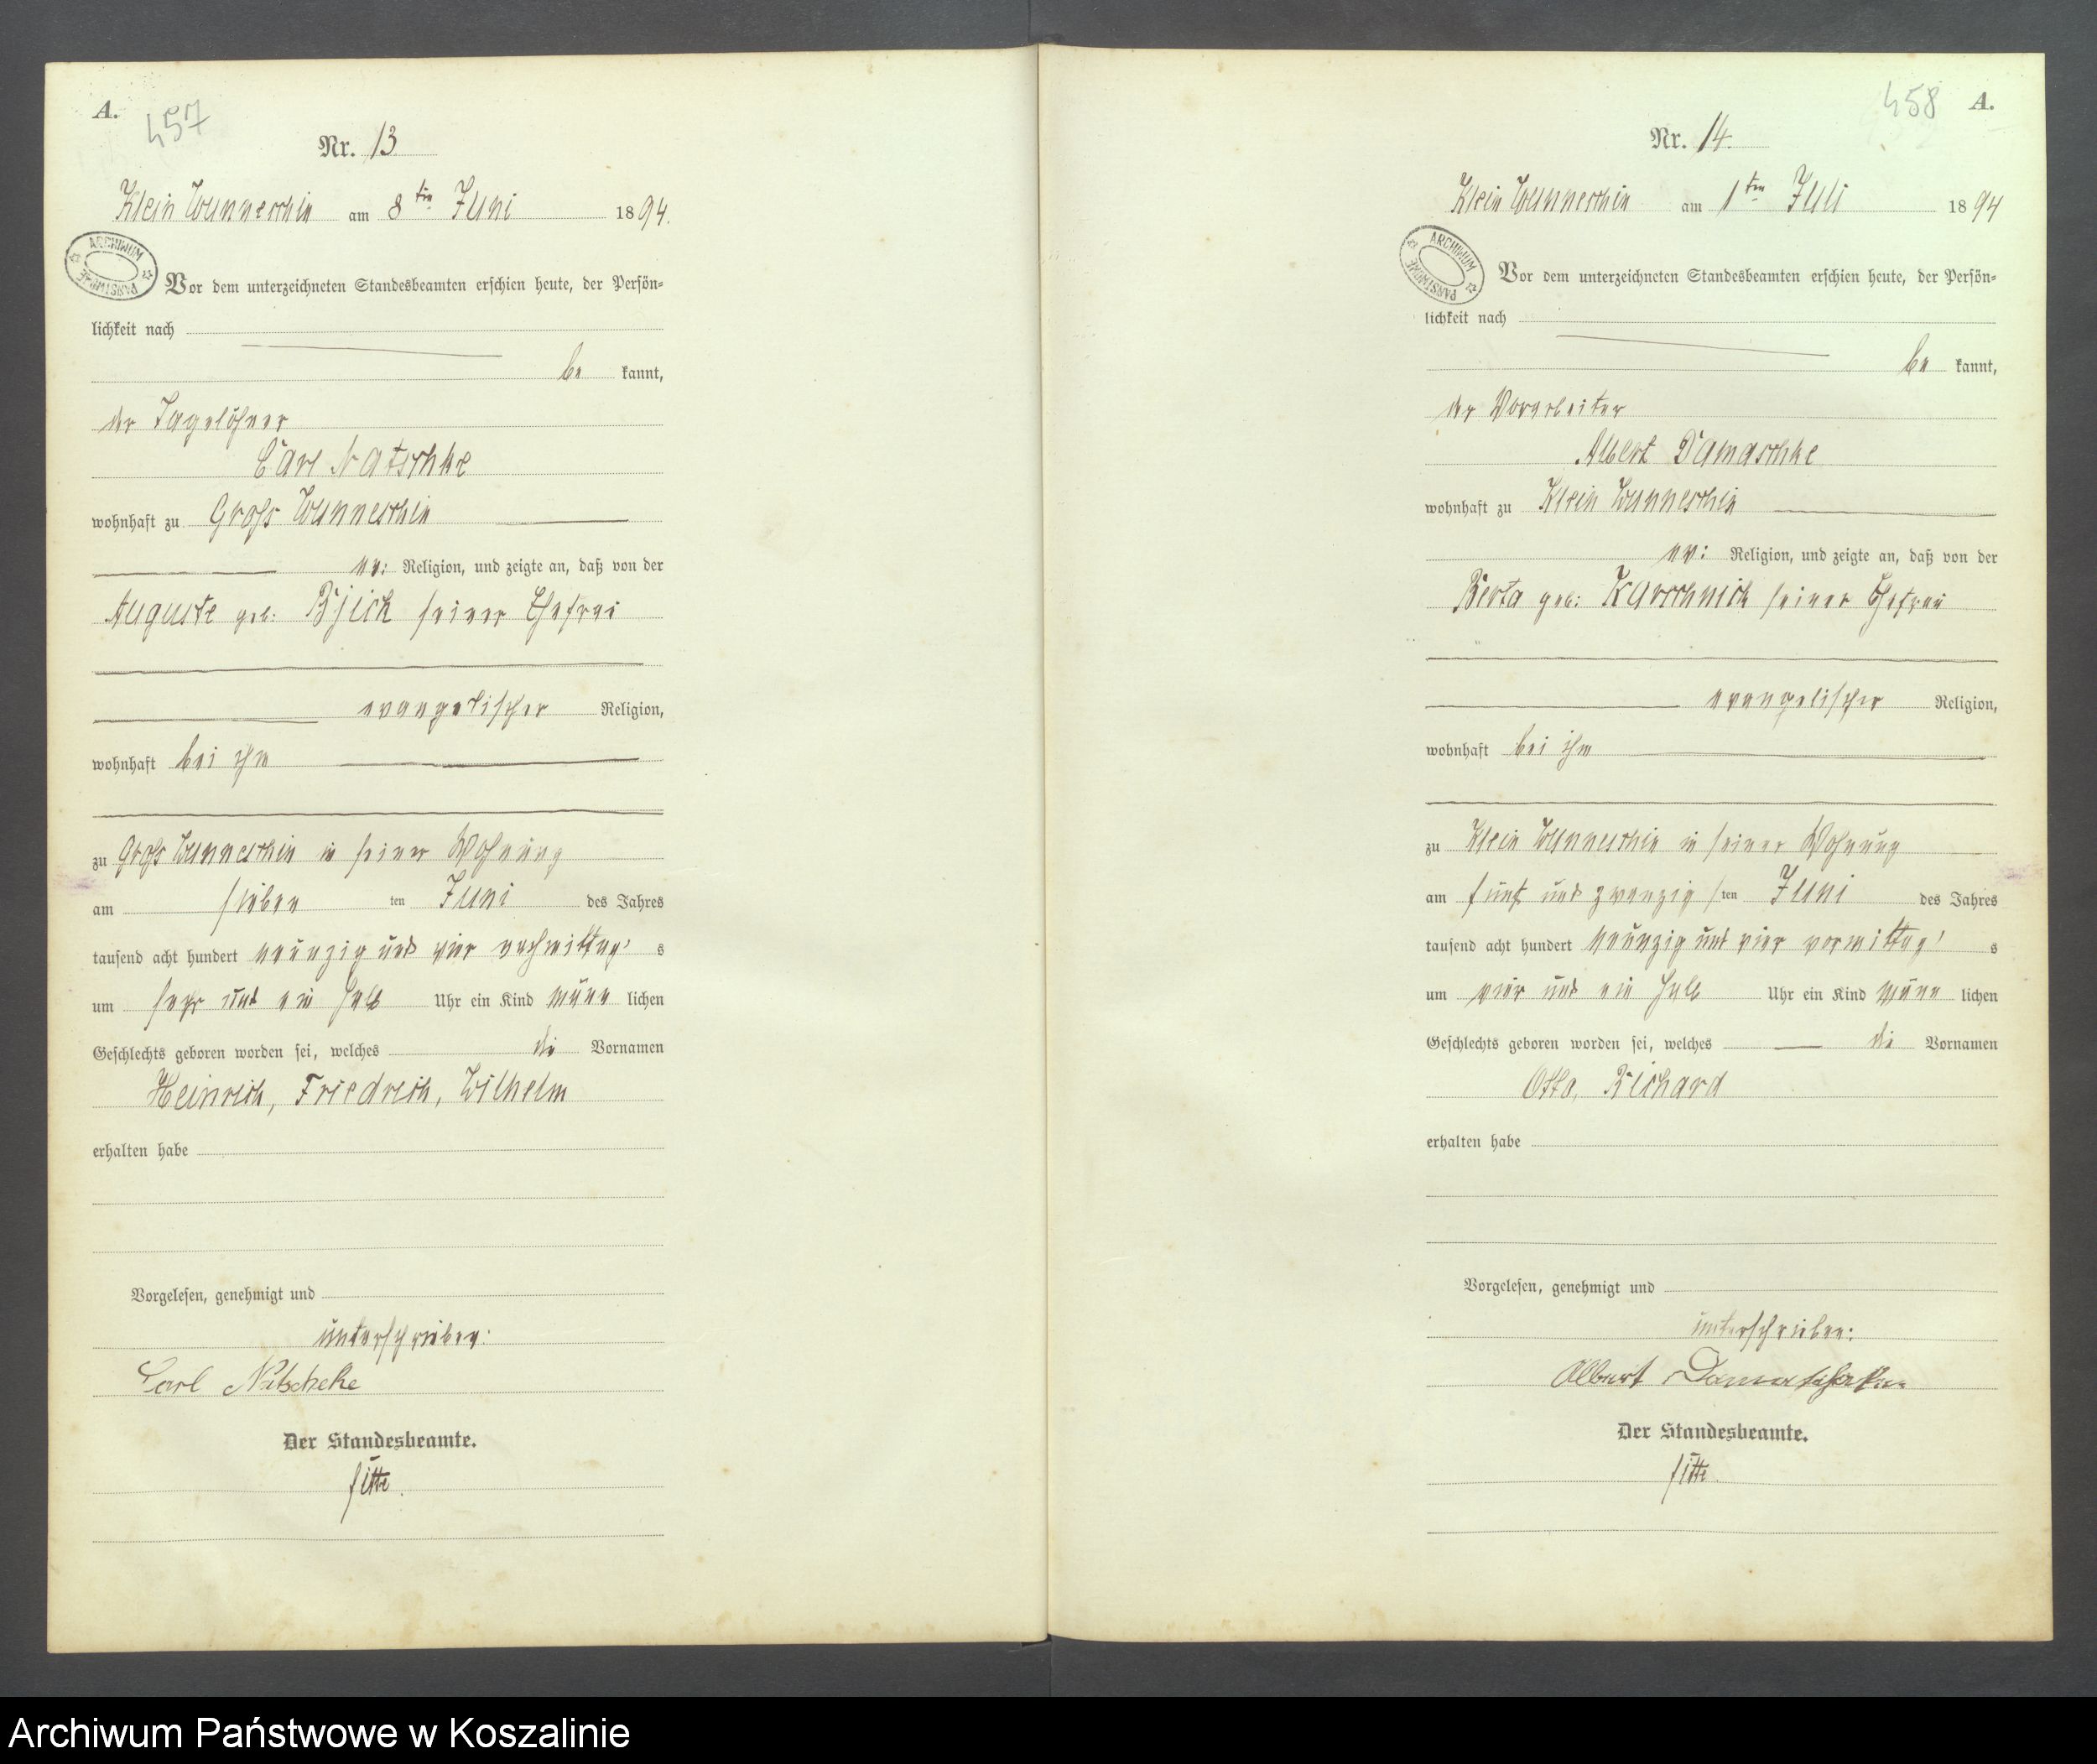 A.
457
Nr. 13
Klein Wunneschin am 8ten Juni 1894.
ARCHIWUM PAŃSTWOWE
Vor dem unterzeichneten Standesbeamten erschien heute, der Persön-
lichkeit nach
be kannt,
der Tagelöhner
Carl Natschke
wohnhaft zu Groß Wunneschin
ev: Religion, und zeigte an, daß von der
Auguste geb: Bjick seiner Ehefrau
evangelischer Religion,
wohnhaft bei ihm
zu Groß Wunneschin in seiner Wohnung
am sieben ten Juni des Jahres
tausend acht hundert neunzig und vier nachmittag s
um sechs und ein halb Uhr ein Kind männ lichen
Geschlechts geboren worden sei, welches die Vornamen
Heinrich, Friedrich, Wilhelm
erhalten habe
Vorgelesen, genehmigt und
unterschrieben:
Carl Natscheke
Der Standesbeamte.
458
A.
Nr. 14.
Klein Wunneschin am 1ten Juli 1894
ARCHIWUM PAŃSTWOWE
Vor dem unterzeichneten Standesbeamten erschien heute, der Persön-
lichkeit nach
be kannt,
der Vorarbeiter
Albert Damaschke
wohnhaft zu Klein Wunneschin
ev: Religion, und zeigte an, daß von der
Berta geb: Karschnick seiner Ehefrau
evangelischer Religion,
wohnhaft bei ihm
zu Klein Wunneschin in seiner Wohnung
am fünf und zwanzig sten Juni des Jahres
tausend acht hundert neunzig und vier vormittag s
um vier und ein halb Uhr ein Kind männ lichen
Geschlechts geboren worden sei, welches die Vornamen
Otto, Richard
erhalten habe
Vorgelesen, genehmigt und
unterschrieben:
Albert Damaschke
Der Standesbeamte.
Archiwum Państwowe w Koszalinie